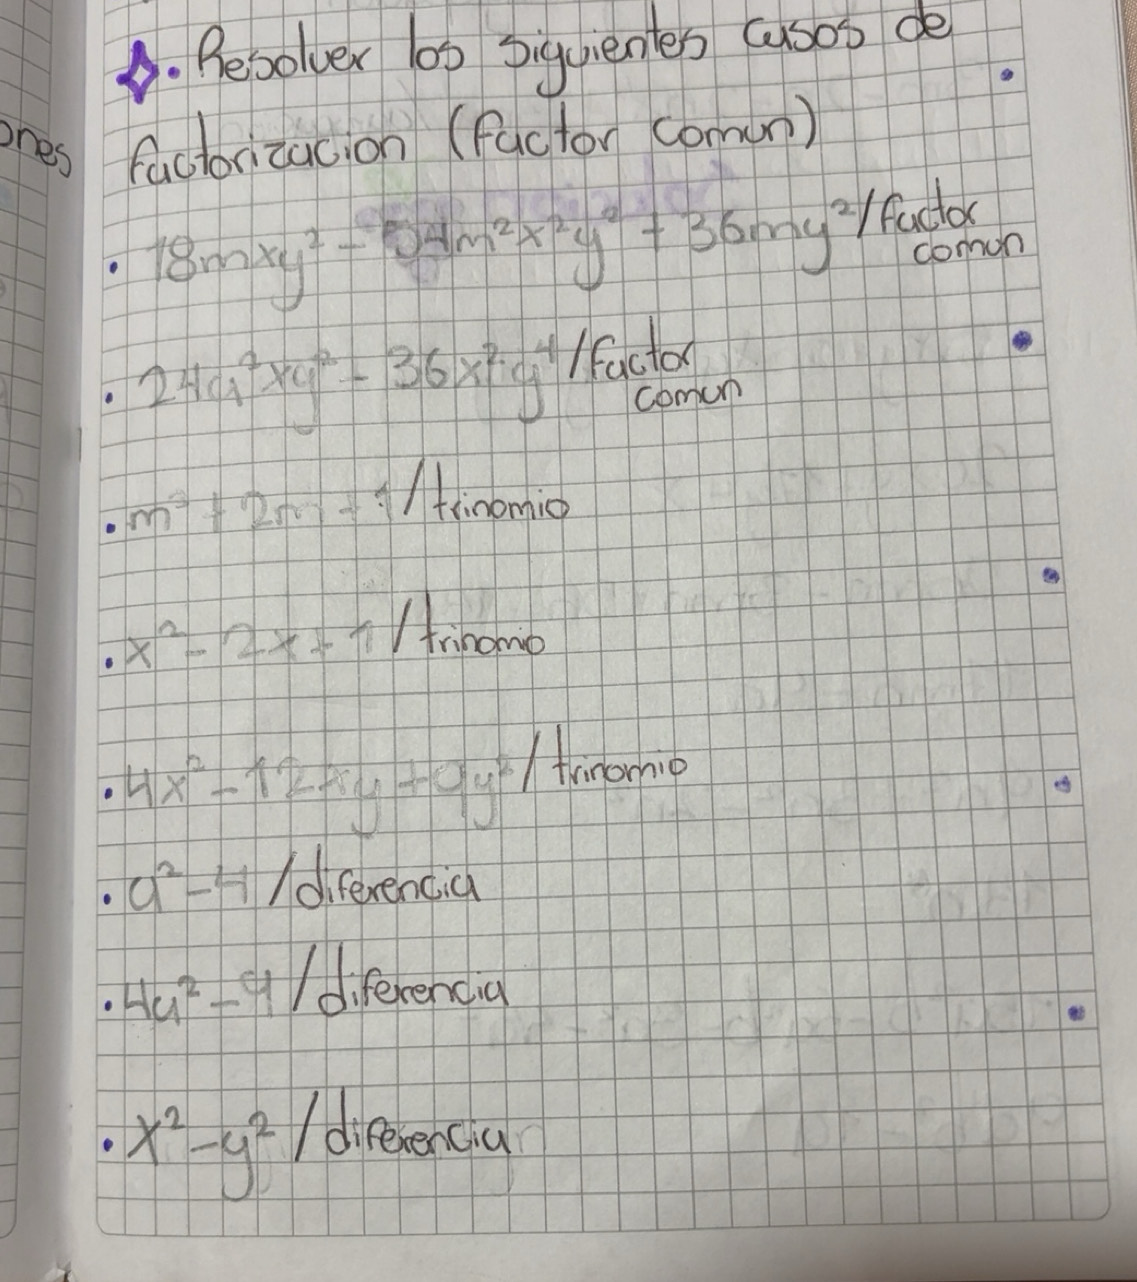 . Resolver los siguientes casos de
ones
factorizacion (factor comun)
. 18mxy² - 54m²x²y² + 36my² / factor
comun
. 24a²xy² - 36x²y⁴ / factor
comun
. m² + 2m + 1 / trinomio
. x² - 2x + 1 / trinomio
. 4x² - 12xy + 9y² / trinomio
. a² - 4 / diferencia
. 4a² - 9 / diferencia
. x² - y² / diferencia